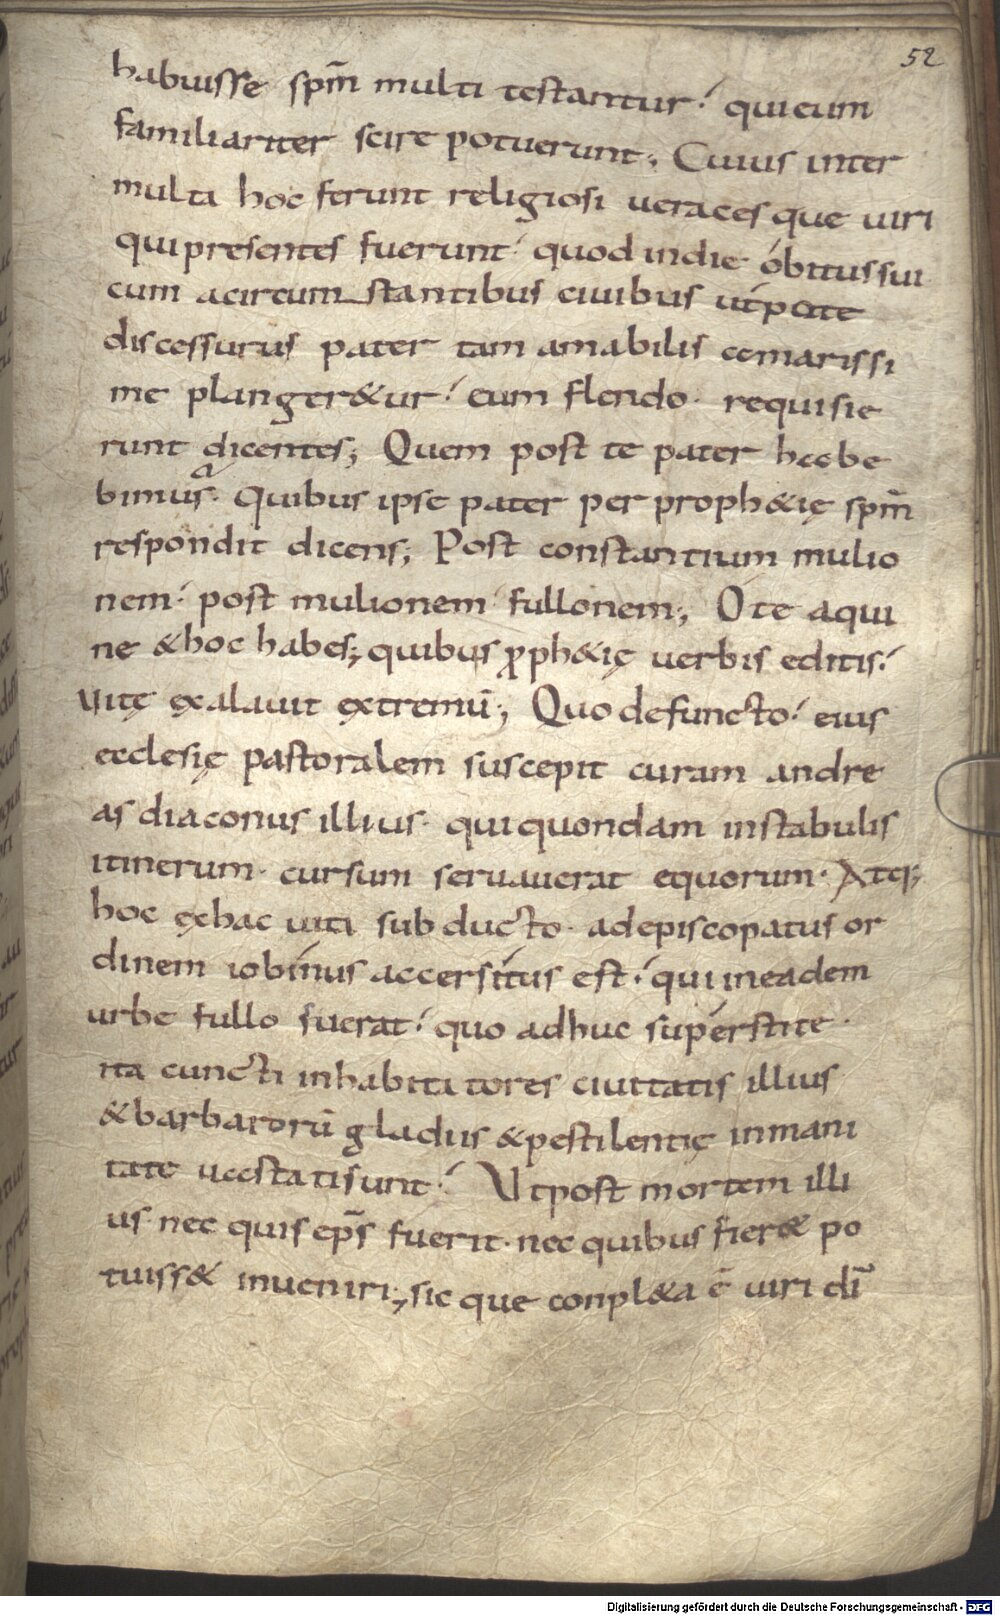 52
habuisse spm̄ multi testantur. qui eum
familiariter scire potuerunt; Cuius inter
multa hoc ferunt religiosi ueraces que uiri
qui presentes fuerunt. quod in die obitus sui
cum a circum stantibus ciuibus utpote
discessurus pater tam amabilis et amarissi
me planger&ur. eum flendo. requisie
runt dicentes; Quem post te pater habe
bimus. Quibus ipse pater per proph&ię spm̄
respondit dicens; Post constantium mulio
nem. post mulionem fullonem; O te aqui
ne & hoc habes; quibus ꝓph&ię uerbis editis.
uitę exalauit extremū; Quo defuncto. eius
ecclesię pastoralem suscepit curam andre
as diaconus illius. qui quondam in stabulis
itinerum. cursum seruauerat equorum. Atq;
hoc ex hac uita sub ducto. ad episcopatus or
dinem iobinus accersitus est. qui in eadem
urbe fullo fuerat. quo adhuc superstite.
ita cuncti inhabita tores ciuitatis illius
& barbarorū gladiis & pestilentię inmani
tate uastati sunt. Ut post mortem illi
us nec quis ep̄s fuerit. nec quibus fier& po
tuiss& inueniri; sic que conpl&a ē uiri dī
Digitalisierung gefördert durch die Deutsche Forschungsgemeinschaft - DFG